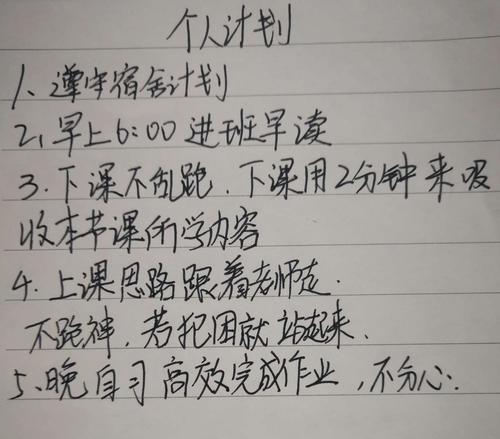 个人计划
1、遵守宿舍计划
2、早上6:00进班早读
3.下课不乱跑.下课用2分钟来吸
收本节课所学内容
4.上课思路跟着老师走.
不跑神,若犯困就站起来.
5、晚自习高效完成作业,不分心.